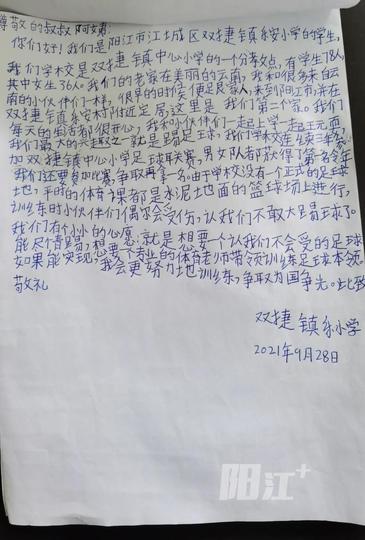 尊敬的叔叔阿姨:
你们好!我们是阳江市江城区双捷镇乐安小学的学生,
我们学校是双捷镇中心小学的一个分教点,有学生78人,
其中女生36人。我们的老家在美丽的云南,我和很多来自云
南的小伙伴们一样,很早的时候便随家人,来到阳江市,并在
双捷镇乐安村附近定居,这里是我们第二个家。我们
每天的生活都很开心,我和小伙伴们一起上学一起玩,而
我们最大的兴趣之一就是踢足球,我们学校连续三年参
加双捷镇中心小学足球联赛,男女队都获得了第一名,今年
我们还要参加比赛,争取再拿一名。由于学校没有一个正式的足球
地,平时的体育课都是水泥地面的篮球场上进行,
训练时小伙伴们偶尔会受伤,认我们不敢大踢球了。
我们有个小小的心愿:就是想要一个认我们不会受的足球
能尽情踢,想要个专业的体育老师带领训练足球本领,
如果能实现,我会更努力地训练,争取为国争光。此致
敬礼
双捷镇乐小学
2021年9月28日
阳江+